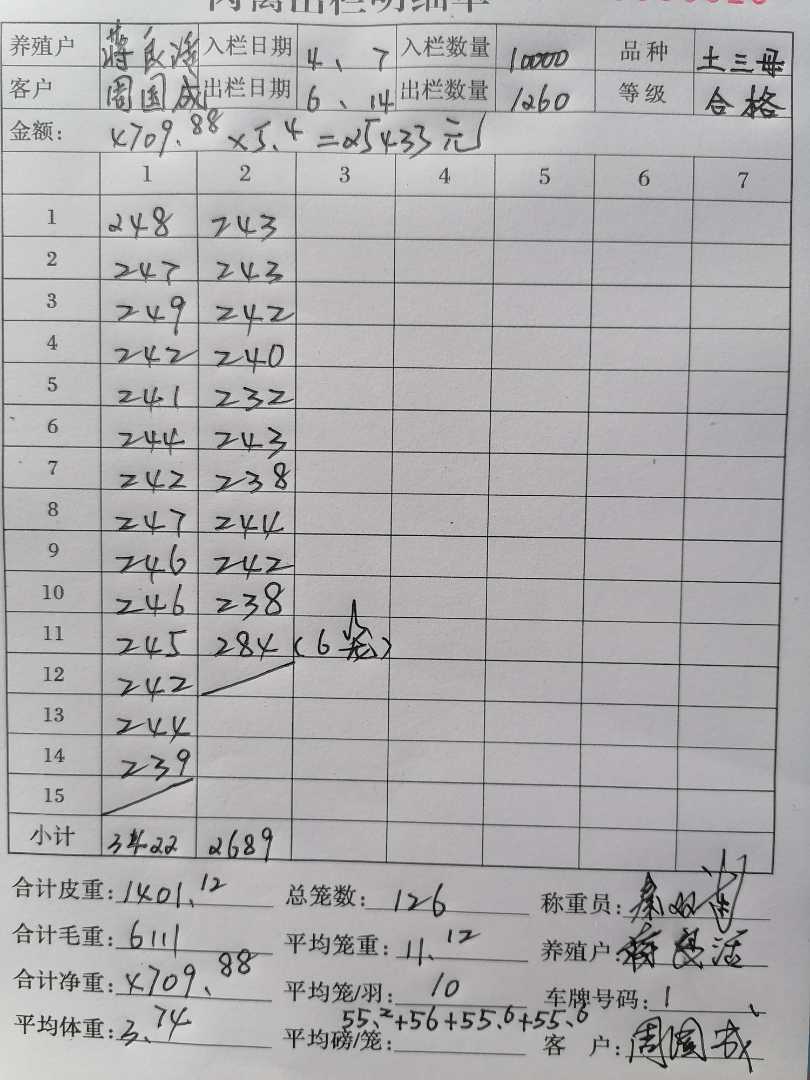 肉禽出栏明细单
养殖户 蒋良活 入栏日期 4、7 入栏数量 10000 品种 土三母
客户 周国成 出栏日期 6、14 出栏数量 1260 等级 合格
金额: 4709.88×5.4=25433元
1 2 3 4 5 6 7
1 248 243
2 247 243
3 249 242
4 242 240
5 241 232
6 244 243
7 242 238
8 247 244
9 246 242
10 246 238
11 245 284 (6笼)
12 242
13 244
14 239
15
小计 3422 2689
合计皮重: 1401.12 总笼数: 126 称重员:
合计毛重: 6111 平均笼重: 11.12 养殖户: 蒋良活
合计净重: 4709.88 平均笼/羽: 10 车牌号码:
平均体重: 3.74 平均磅/笼: 55.2+56+55.6+55.6 客 户: 周国成